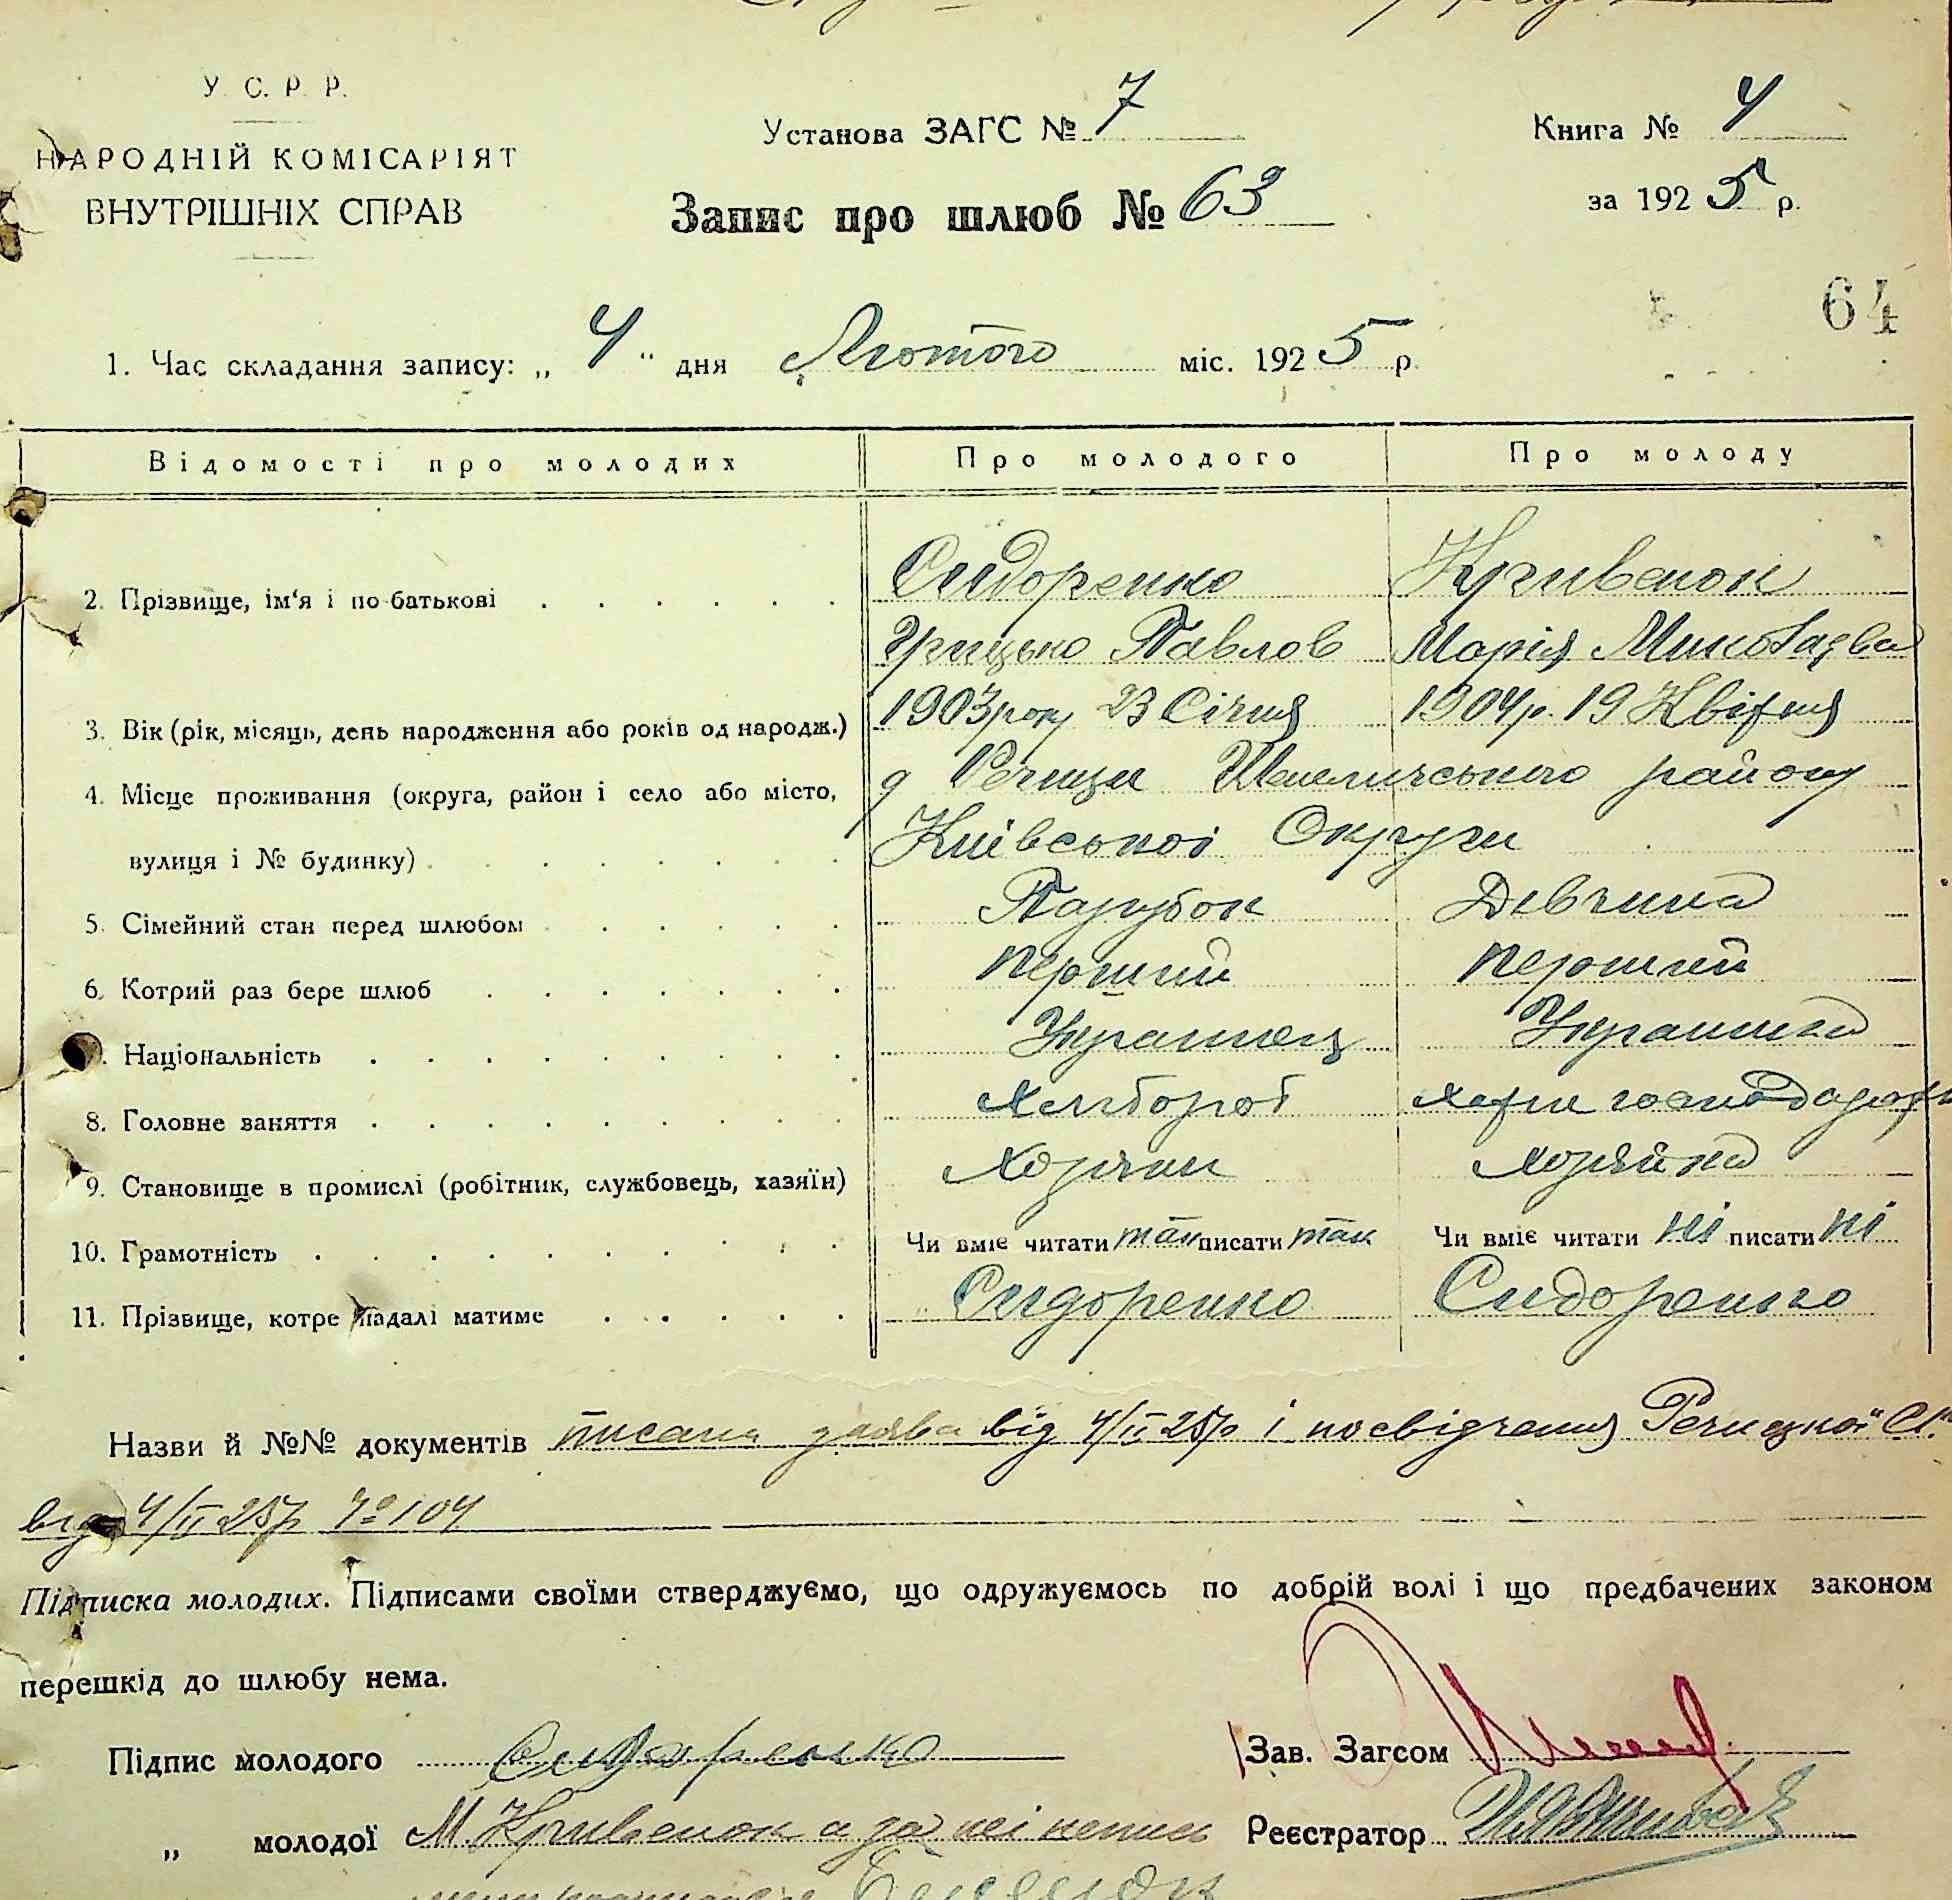 У. С. Р. Р.
НАРОДНІЙ КОМІСАРІЯТ
ВНУТРІШНІХ СПРАВ
Установа ЗАГС № 7
Запис про шлюб № 63
Книга № 4
за 1925 р.
64
1. Час складання запису: „ 4 " дня Лютого міс. 1925 р.
Відомості про молодих Про молодого Про молоду
Сидоренко Кривенок
2. Прізвище, ім'я і по батькові
Грицько Павлов Марія Миколаєва
3. Вік (рік, місяць, день народження або років од народж.) 1903 року 23 Січня 1904 р. 19 Квітня
4. Місце проживання (округа, район і село або місто, д Речищи Шепелицького району
вулиця і № будинку) Київської Округи
5. Сімейний стан перед шлюбом Парубок Дівчина
6. Котрий раз бере шлюб Перший Перший
Національність Українец Українка
8. Головне заняття Хлібороб хатне господарств
9. Становище в промислі (робітник, службовець, хазяїн) Хозяин Хозяйка
10. Грамотність Чи вміє читати так писати так Чи вміє читати ні писати ні
11. Прізвище, котре надалі матиме Сидоренко Сидоренко
Назви й №№ документів писана заява від 4/II 25 р і посвідчення Речицкої С.
від 4/II 25 р № 104
Підписка молодих. Підписами своїми стверджуємо, що одружуємось по добрій волі і що предбачених законом
перешкід до шлюбу нема.
Підпис молодого Сидоренко Зав. Загсом
„ молодої М Кривенок а за неі Реєстратор